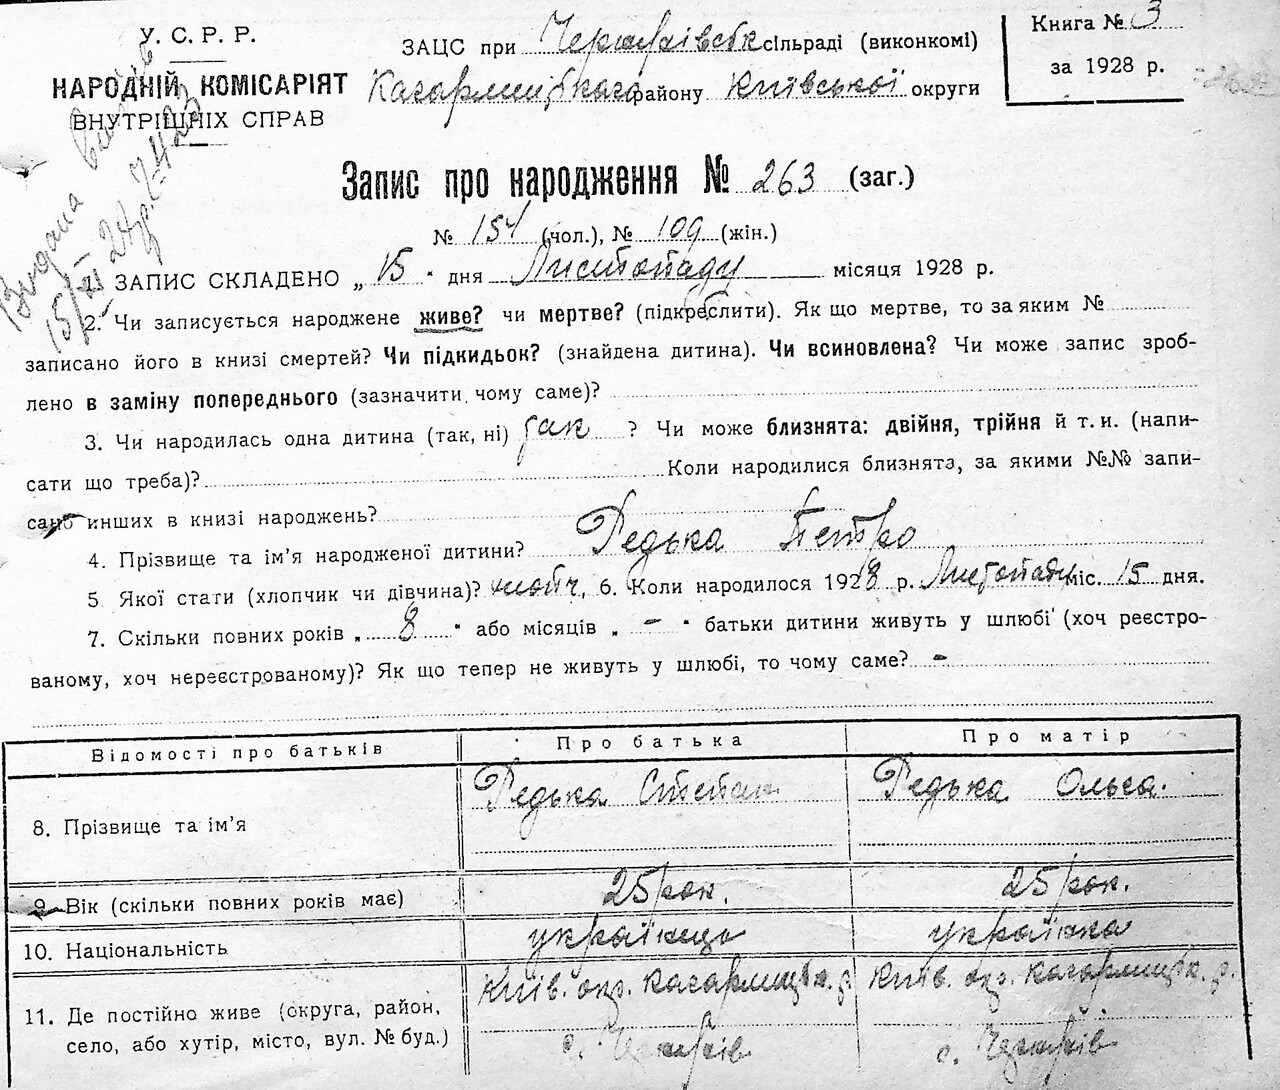 У. С. Р. Р.
НАРОДНІЙ КОМІСАРІЯТ
ВНУТРІШНІХ СПРАВ
ЗАЦС при сільраді (виконкомі)
району Київської округи
Книга № 3
за 1928 р.
Видана
Запис про народження № 263 (заг.)
№ 154 (чол.), № 109 (жін.)
1. ЗАПИС СКЛАДЕНО „ 15 " дня Листопаду місяця 1928 р.
2. Чи записується народжене живе? чи мертве? (підкреслити). Як що мертве, то за яким №
записано його в книзі смертей? Чи підкидьок? (знайдена дитина). Чи всиновлена? Чи може запис зроб-
лено в заміну попереднього (зазначити чому саме)?
3. Чи народилась одна дитина (так, ні) так ? Чи може близнята: двійня, трійня й т. и. (напи-
сати що треба)? Коли народилися близнята, за якими №№ запи-
сано инших в книзі народжень?
4. Прізвище та ім'я народженої дитини? Редька Петро
5 Якої стати (хлопчик чи дівчина)? хлопч. 6. Коли народилося 1928 р. Листопаду міс. 15 дня.
7. Скільки повних років „ 8 " або місяців „ - " батьки дитини живуть у шлюбі (хоч реєстро-
ваному, хоч нереєстрованому)? Як що тепер не живуть у шлюбі, то чому саме? -
Відомості про батьків Про батька Про матір
8. Прізвище та ім'я Редька Степан Редька Ольга.
9. Вік (скільки повних років має) 25 рок. 25 рок.
10. Національність українець українка
11. Де постійно живе (округа, район, Київ. окр. Кагарлицьк. р. Київ. окр. Кагарлицьк. р.
село, або хутір, місто, вул. № буд.) с. с.